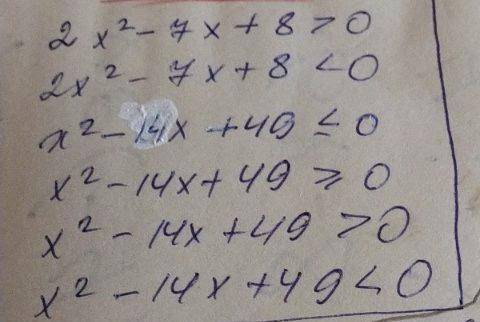 2x² - 7x + 8 > 0
2x² - 7x + 8 < 0
x² - 14x + 49 ≤ 0
x² - 14x + 49 ≥ 0
x² - 14x + 49 > 0
x² - 14x + 49 < 0